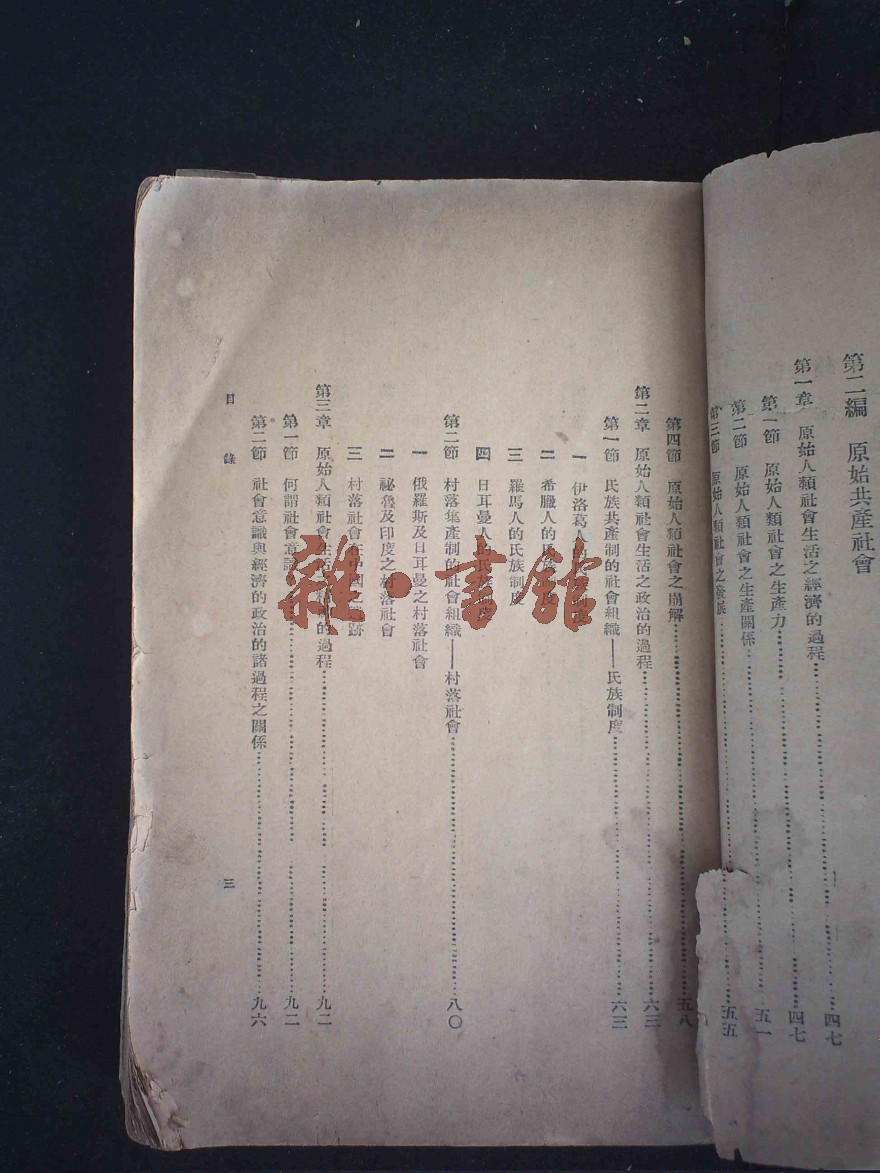 第二編　原始共產社會
第一章　原始人類社會生活之經濟的過程……四七
第一節　原始人類社會之生產力……四七
第二節　原始人類社會之生產關係……五一
第三節　原始人類社會之發展……五五
第四節　原始人類社會之崩解……五八
第二章　原始人類社會生活之政治的過程……六三
第一節　氏族共產制的社會組織——氏族制度……六三
一　伊洛葛人的氏族制度
二　希臘人的氏族制度
三　羅馬人的氏族制度
四　日耳曼人的氏族制度
第二節　村落集產制的社會組織——村落社會……八〇
一　俄羅斯及日耳曼之村落社會
二　祕魯及印度之村落社會
三　村落社會在中國之遺跡
第三章　原始人類社會生活之精神的過程……九二
第一節　何謂社會意識……九二
第二節　社會意識與經濟的政治的諸過程之關係……九六
目　錄
三
雜·書館